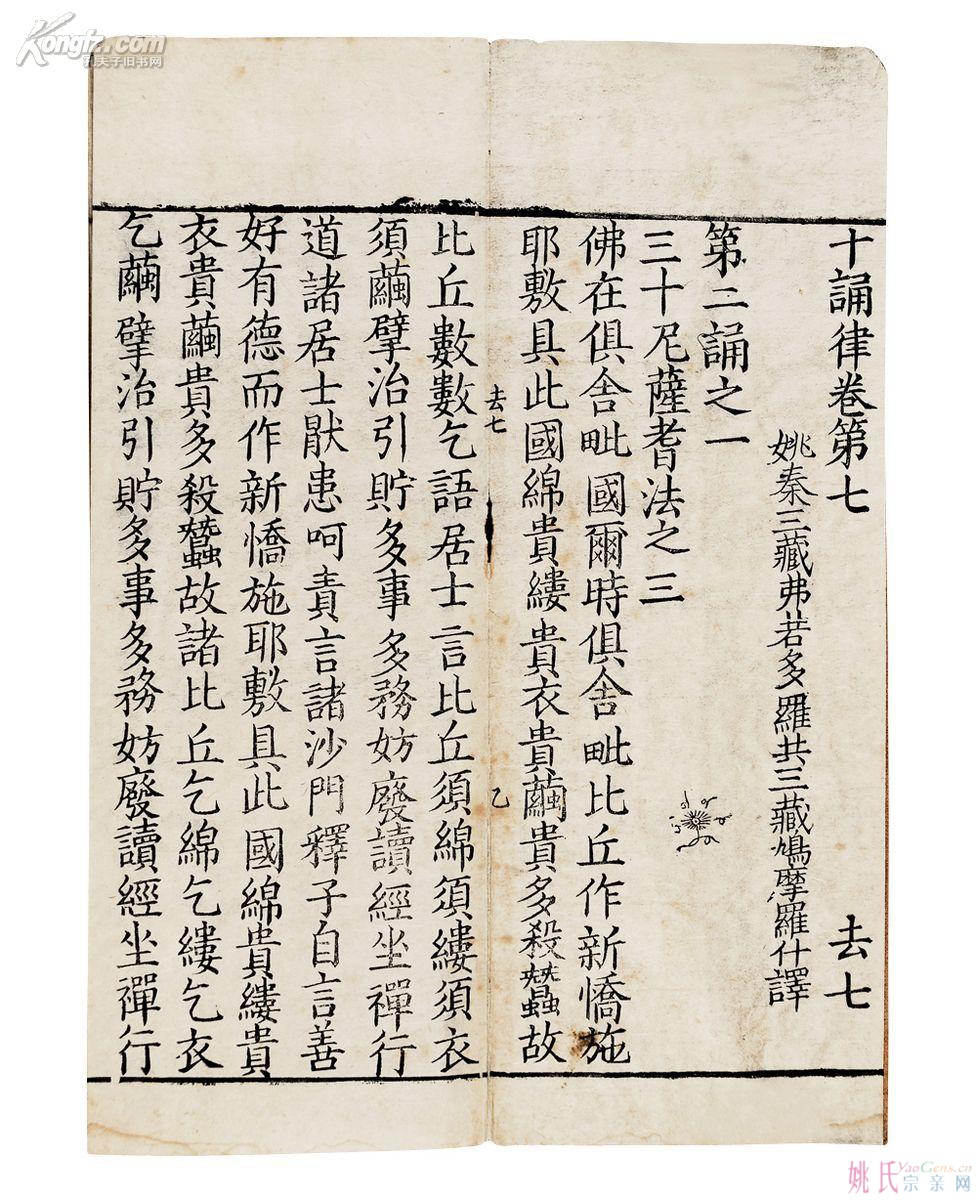 十誦律卷第七 去七
姚秦三藏弗若多羅共三藏鳩摩羅什譯
第二誦之一
三十尼薩耆法之三
佛在俱舍毗國爾時俱舍毗比丘作新憍施
耶敷具此國綿貴縷貴衣貴繭貴多殺蠶故
去七 乙
比丘數數乞語居士言比丘須綿須縷須衣
須繭擘治引貯多事多務妨廢讀經坐禪行
道諸居士猒患呵責言諸沙門釋子自言善
好有德而作新憍施耶敷具此國綿貴縷貴
衣貴繭貴多殺蠶故諸比丘乞綿乞縷乞衣
乞繭擘治引貯多事多務妨廢讀經坐禪行
Kongfz.com
孔夫子旧书网
姚氏 YaoGens.cn
宗亲网